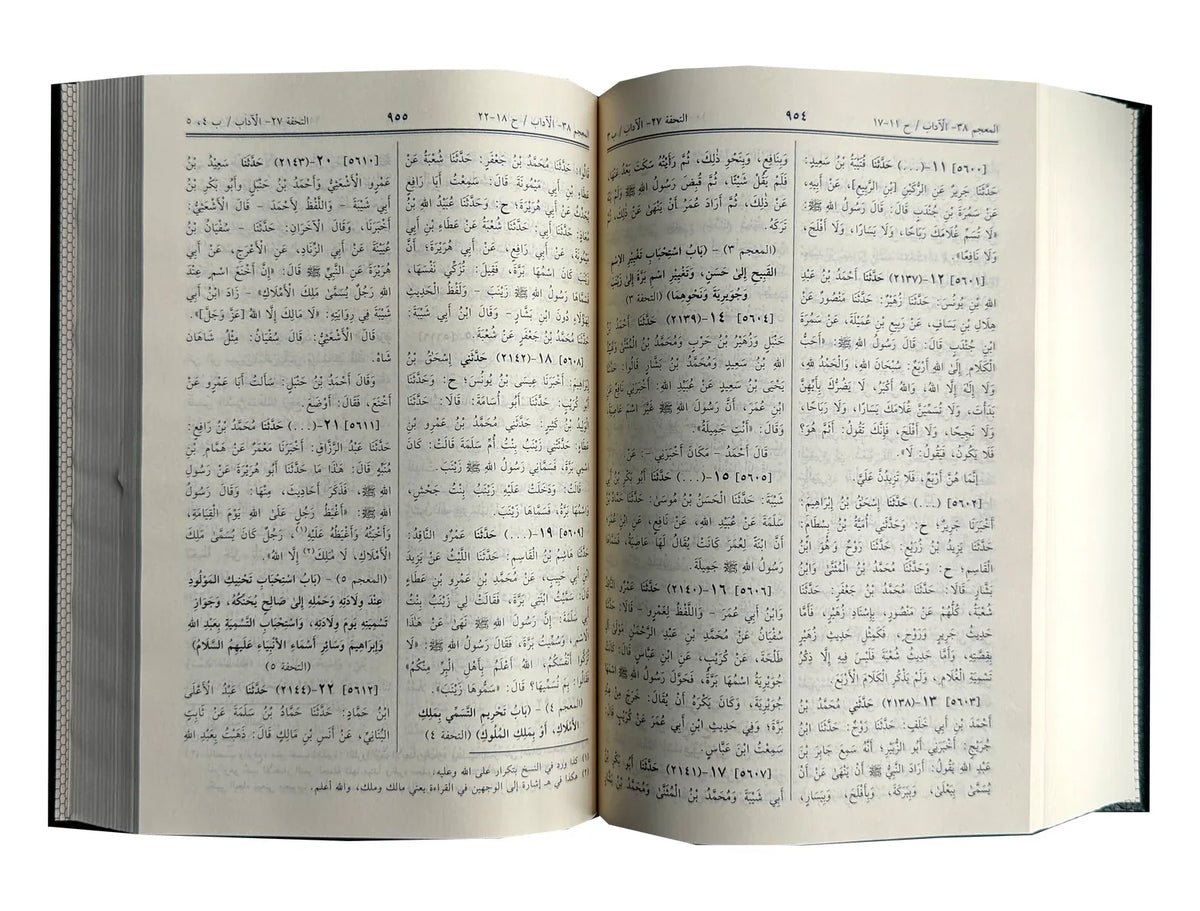 المعجم ٣٨- الآداب / ح ١١-١٧
٩٥٤
التحفة ٢٧- الآداب / ب ٣
[٥٦٠٠] ١١-(...) حَدَّثَنَا قُتَيْبَةُ بْنُ سَعِيدٍ:
حَدَّثَنَا جَرِيرٌ عَنِ الرُّكَيْنِ [بْنِ الرَّبِيعِ]، عَنْ أَبِيهِ،
عَنْ سَمُرَةَ بْنِ جُنْدَبٍ قَالَ: قَالَ رَسُولُ اللهِ ﷺ:
«لَا تُسَمِّ غُلَامَكَ رَبَاحًا، وَلَا يَسَارًا، وَلَا أَفْلَحَ،
وَلَا نَافِعًا».
[٥٦٠١] ١٢-(٢١٣٧) حَدَّثَنَا أَحْمَدُ بْنُ عَبْدِ
اللهِ بْنِ يُونُسَ: حَدَّثَنَا زُهَيْرٌ: حَدَّثَنَا مَنْصُورٌ عَنْ
هِلَالِ بْنِ يَسَافٍ، عَنْ رَبِيعِ بْنِ عُمَيْلَةَ، عَنْ سَمُرَةَ
ابْنِ جُنْدَبٍ قَالَ: قَالَ رَسُولُ اللهِ ﷺ: «أَحَبُّ
الْكَلَامِ إِلَى اللهِ أَرْبَعٌ: سُبْحَانَ اللهِ، وَالْحَمْدُ لِلهِ،
وَلَا إِلٰهَ إِلَّا اللهُ، وَاللهُ أَكْبَرُ، لَا يَضُرُّكَ بِأَيِّهِنَّ
بَدَأْتَ، وَلَا تُسَمِّيَنَّ غُلَامَكَ يَسَارًا، وَلَا رَبَاحًا،
وَلَا نَجِيحًا، وَلَا أَفْلَحَ، فَإِنَّكَ تَقُولُ: أَثَمَّ هُوَ؟
فَلَا يَكُونُ، فَيَقُولُ: لَا».
إِنَّمَا هُنَّ أَرْبَعٌ، فَلَا تَزِيدُنَّ عَلَيَّ.
[٥٦٠٢] (...) حَدَّثَنَا إِسْحٰقُ بْنُ إِبْرَاهِيمَ:
أَخْبَرَنَا جَرِيرٌ؛ ح: وَحَدَّثَنِي أُمَيَّةُ بْنُ بِسْطَامَ:
حَدَّثَنَا يَزِيدُ بْنُ زُرَيْعٍ: حَدَّثَنَا رَوْحٌ وَهُوَ ابْنُ
الْقَاسِمِ؛ ح: وَحَدَّثَنَا مُحَمَّدُ بْنُ الْمُثَنَّى وَابْنُ
بَشَّارٍ قَالَا: حَدَّثَنَا مُحَمَّدُ بْنُ جَعْفَرٍ: حَدَّثَنَا
شُعْبَةُ، كُلُّهُمْ عَنْ مَنْصُورٍ، بِإِسْنَادِ زُهَيْرٍ، فَأَمَّا
حَدِيثُ جَرِيرٍ وَرَوْحٍ، فَكَمِثْلِ حَدِيثِ زُهَيْرٍ
بِقِصَّتِهِ، وَأَمَّا حَدِيثُ شُعْبَةَ فَلَيْسَ فِيهِ إِلَّا ذِكْرُ
تَسْمِيَةِ الْغُلَامِ، وَلَمْ يَذْكُرِ الْكَلَامَ الْأَرْبَعَ.
[٥٦٠٣] ١٣-(٢١٣٨) حَدَّثَنِي مُحَمَّدُ بْنُ
أَحْمَدَ بْنِ أَبِي خَلَفٍ: حَدَّثَنَا رَوْحٌ: حَدَّثَنَا ابْنُ
جُرَيْجٍ: أَخْبَرَنِي أَبُو الزُّبَيْرِ؛ أَنَّهُ سَمِعَ جَابِرَ بْنَ
عَبْدِ اللهِ يَقُولُ: أَرَادَ النَّبِيُّ ﷺ أَنْ يَنْهَى عَنْ أَنْ
يُسَمَّى بِيَعْلَىٰ، وَبِبَرَكَةَ، وَبِأَفْلَحَ، وَبِيَسَارٍ،
وَبِنَافِعٍ، وَبِنَحْوِ ذٰلِكَ، ثُمَّ رَأَيْتُهُ سَكَتَ بَعْدُ عَنْهَا،
فَلَمْ يَقُلْ شَيْئًا، ثُمَّ قُبِضَ رَسُولُ اللهِ ﷺ وَلَمْ يَنْهَ
عَنْ ذٰلِكَ، ثُمَّ أَرَادَ عُمَرُ أَنْ يَنْهَىٰ عَنْ ذٰلِكَ، ثُمَّ
تَرَكَهُ.
(المعجم ٣) - (بَابُ اسْتِحْبَابِ تَغْيِيرِ الِاسْمِ
الْقَبِيحِ إِلَىٰ حَسَنٍ، وَتَغْيِيرِ اسْمِ بَرَّةَ إِلَىٰ
وَجُوَيْرِيَةَ وَنَحْوِهِمَا) (التحفة ٣)
[٥٦٠٤] ١٤-(٢١٣٩) حَدَّثَنَا أَحْمَدُ بْنُ
حَنْبَلٍ وَزُهَيْرُ بْنُ حَرْبٍ وَمُحَمَّدُ بْنُ الْمُثَنَّى وَعُبَيْدُ
اللهِ بْنُ سَعِيدٍ وَمُحَمَّدُ بْنُ بَشَّارٍ قَالُوا: حَدَّثَنَا
يَحْيَى بْنُ سَعِيدٍ عَنْ عُبَيْدِ اللهِ: أَخْبَرَنِي نَافِعٌ عَنِ
ابْنِ عُمَرَ، أَنَّ رَسُولَ اللهِ ﷺ غَيَّرَ اسْمَ عَاصِيَةَ،
وَقَالَ: «أَنْتِ جَمِيلَةُ».
قَالَ أَحْمَدُ - مَكَانَ أَخْبَرَنِي -: عَنْ.
[٥٦٠٥] ١٥-(...) حَدَّثَنَا أَبُو بَكْرِ بْنُ أَبِي
شَيْبَةَ: حَدَّثَنَا الْحَسَنُ بْنُ مُوسَىٰ: حَدَّثَنَا حَمَّادُ بْنُ
سَلَمَةَ عَنْ عُبَيْدِ اللهِ، عَنْ نَافِعٍ، عَنِ ابْنِ عُمَرَ؛
أَنَّ ابْنَةً لِعُمَرَ كَانَتْ يُقَالُ لَهَا عَاصِيَةُ، فَسَمَّاهَا
رَسُولُ اللهِ ﷺ جَمِيلَةَ.
[٥٦٠٦] ١٦-(٢١٤٠) حَدَّثَنَا عَمْرٌو النَّاقِدُ
وَابْنُ أَبِي عُمَرَ - وَاللَّفْظُ لِعَمْرٍو - قَالَا: حَدَّثَنَا
سُفْيَانُ عَنْ مُحَمَّدِ بْنِ عَبْدِ الرَّحْمٰنِ مَوْلَىٰ آلِ
طَلْحَةَ، عَنْ كُرَيْبٍ، عَنِ ابْنِ عَبَّاسٍ قَالَ: كَانَتْ
جُوَيْرِيَةُ اسْمُهَا بَرَّةُ، فَحَوَّلَ رَسُولُ اللهِ ﷺ اسْمَهَا
جُوَيْرِيَةَ، وَكَانَ يَكْرَهُ أَنْ يُقَالَ: خَرَجَ مِنْ عِنْدِ
بَرَّةَ؛ وَفِي حَدِيثِ ابْنِ أَبِي عُمَرَ عَنْ كُرَيْبٍ قَالَ:
سَمِعْتُ ابْنَ عَبَّاسٍ.
[٥٦٠٧] ١٧-(٢١٤١) حَدَّثَنَا أَبُو بَكْرِ بْنُ
أَبِي شَيْبَةَ وَمُحَمَّدُ بْنُ الْمُثَنَّىٰ وَمُحَمَّدُ بْنُ بَشَّارٍ
المعجم ٣٨- الآداب / ح ١٨-٢٢
٩٥٥
التحفة ٢٧- الآداب / ب ٤، ٥
قَالُوا: حَدَّثَنَا مُحَمَّدُ بْنُ جَعْفَرٍ: حَدَّثَنَا شُعْبَةُ عَنْ
عَطَاءِ بْنِ أَبِي مَيْمُونَةَ، قَالَ: سَمِعْتُ أَبَا رَافِعٍ
يُحَدِّثُ عَنْ أَبِي هُرَيْرَةَ؛ ح: وَحَدَّثَنَا عُبَيْدُ اللهِ بْنُ
مُعَاذٍ: حَدَّثَنَا أَبِي: حَدَّثَنَا شُعْبَةُ عَنْ عَطَاءِ بْنِ أَبِي
مَيْمُونَةَ، عَنْ أَبِي رَافِعٍ، عَنْ أَبِي هُرَيْرَةَ؛ أَنَّ
زَيْنَبَ كَانَ اسْمُهَا بَرَّةَ، فَقِيلَ: تُزَكِّي نَفْسَهَا،
فَسَمَّاهَا رَسُولُ اللهِ ﷺ زَيْنَبَ - وَلَفْظُ الْحَدِيثِ
لِهٰؤُلَاءِ دُونَ ابْنِ بَشَّارٍ - وَقَالَ ابْنُ أَبِي شَيْبَةَ:
حَدَّثَنَا مُحَمَّدُ بْنُ جَعْفَرٍ عَنْ شُعْبَةَ.
[٥٦٠٨] ١٨-(٢١٤٢) حَدَّثَنِي إِسْحٰقُ بْنُ
إِبْرَاهِيمَ: أَخْبَرَنَا عِيسَى بْنُ يُونُسَ؛ ح: وَحَدَّثَنَا
أَبُو كُرَيْبٍ: حَدَّثَنَا أَبُو أُسَامَةَ: قَالَا: حَدَّثَنَا
الْوَلِيدُ بْنُ كَثِيرٍ: حَدَّثَنِي مُحَمَّدُ بْنُ عَمْرِو بْنِ
عَطَاءٍ: حَدَّثَتْنِي زَيْنَبُ بِنْتُ أُمِّ سَلَمَةَ قَالَتْ: كَانَ
اسْمِي بَرَّةَ، فَسَمَّانِي رَسُولُ اللهِ ﷺ زَيْنَبَ.
قَالَتْ: وَدَخَلَتْ عَلَيْهِ زَيْنَبُ بِنْتُ جَحْشٍ،
وَاسْمُهَا بَرَّةُ، فَسَمَّاهَا زَيْنَبَ.
[٥٦٠٩] ١٩-(...) حَدَّثَنَا عَمْرٌو النَّاقِدُ:
حَدَّثَنَا هَاشِمُ بْنُ الْقَاسِمِ: حَدَّثَنَا اللَّيْثُ عَنْ يَزِيدَ
ابْنِ أَبِي حَبِيبٍ، عَنْ مُحَمَّدِ بْنِ عَمْرِو بْنِ عَطَاءٍ
قَالَ: سَمَّيْتُ ابْنَتِي بَرَّةَ، فَقَالَتْ لِي زَيْنَبُ بِنْتُ
أَبِي سَلَمَةَ: إِنَّ رَسُولَ اللهِ ﷺ نَهَىٰ عَنْ هٰذَا
الِاسْمِ، وَسُمِّيتُ بَرَّةَ، فَقَالَ رَسُولُ اللهِ ﷺ: «لَا
تُزَكُّوا أَنْفُسَكُمْ، اللهُ أَعْلَمُ بِأَهْلِ الْبِرِّ مِنْكُمْ»
فَقَالُوا: بِمَ نُسَمِّيهَا؟ قَالَ: «سَمُّوهَا زَيْنَبَ».
(المعجم ٤) - (بَابُ تَحْرِيمِ التَّسَمِّي بِمَلِكِ
الْأَمْلَاكِ، أَوْ بِمَلِكِ الْمُلُوكِ) (التحفة ٤)
[٥٦١٠] ٢٠-(٢١٤٣) حَدَّثَنَا سَعِيدُ بْنُ
عَمْرٍو الْأَشْعَثِيُّ وَأَحْمَدُ بْنُ حَنْبَلٍ وَأَبُو بَكْرِ بْنُ
أَبِي شَيْبَةَ - وَاللَّفْظُ لِأَحْمَدَ - قَالَ الْأَشْعَثِيُّ:
أَخْبَرَنَا، وَقَالَ الْآخَرَانِ: حَدَّثَنَا - سُفْيَانُ بْنُ
عُيَيْنَةَ عَنْ أَبِي الزِّنَادِ، عَنِ الْأَعْرَجِ، عَنْ أَبِي
هُرَيْرَةَ عَنِ النَّبِيِّ ﷺ قَالَ: «إِنَّ أَخْنَعَ اسْمٍ عِنْدَ
اللهِ رَجُلٌ يُسَمَّى مَلِكَ الْأَمْلَاكِ» - زَادَ ابْنُ أَبِي
شَيْبَةَ فِي رِوَايَتِهِ: «لَا مَالِكَ إِلَّا اللهُ [عَزَّ وَجَلَّ]».
قَالَ الْأَشْعَثِيُّ: قَالَ سُفْيَانُ: مِثْلُ شَاهَانْ
شَاهْ.
وَقَالَ أَحْمَدُ بْنُ حَنْبَلٍ: سَأَلْتُ أَبَا عَمْرٍو عَنْ
أَخْنَعَ، فَقَالَ: أَوْضَعَ.
[٥٦١١] ٢١-(...) حَدَّثَنَا مُحَمَّدُ بْنُ رَافِعٍ:
حَدَّثَنَا عَبْدُ الرَّزَّاقِ: أَخْبَرَنَا مَعْمَرٌ عَنْ هَمَّامِ بْنِ
مُنَبِّهٍ قَالَ: هٰذَا مَا حَدَّثَنَا أَبُو هُرَيْرَةَ عَنْ رَسُولِ
اللهِ ﷺ، فَذَكَرَ أَحَادِيثَ، مِنْهَا: وَقَالَ رَسُولُ
اللهِ ﷺ: «أَغْيَظُ رَجُلٍ عَلَى اللهِ يَوْمَ الْقِيَامَةِ،
وَأَخْبَثُهُ وَأَغْيَظُهُ عَلَيْهِ(١)، رَجُلٌ كَانَ يُسَمَّىٰ مَلِكَ
الْأَمْلَاكِ، لَا مَلِكَ(٢) إِلَّا اللهُ».
(المعجم ٥) - (بَابُ اسْتِحْبَابِ تَحْنِيكِ الْمَوْلُودِ
عِنْدَ وِلَادَتِهِ وَحَمْلِهِ إِلَىٰ صَالِحٍ يُحَنِّكُهُ، وَجَوَازِ
تَسْمِيَتِهِ يَوْمَ وِلَادَتِهِ، وَاسْتِحْبَابِ التَّسْمِيَةِ بِعَبْدِ اللهِ
وَإِبْرَاهِيمَ وَسَائِرِ أَسْمَاءِ الْأَنْبِيَاءِ عَلَيْهِمُ السَّلَامُ)
(التحفة ٥)
[٥٦١٢] ٢٢-(٢١٤٤) حَدَّثَنَا عَبْدُ الْأَعْلَى
ابْنُ حَمَّادٍ: حَدَّثَنَا حَمَّادُ بْنُ سَلَمَةَ عَنْ ثَابِتٍ
الْبُنَانِيِّ، عَنْ أَنَسِ بْنِ مَالِكٍ قَالَ: ذَهَبْتُ بِعَبْدِ اللهِ
(١) كذا ورد في النسخ بتكرار على الله وعليه.
(٢) هكذا في هـ إشارة إلى الوجهين في القراءة يعني مالك وملك، والله أعلم.